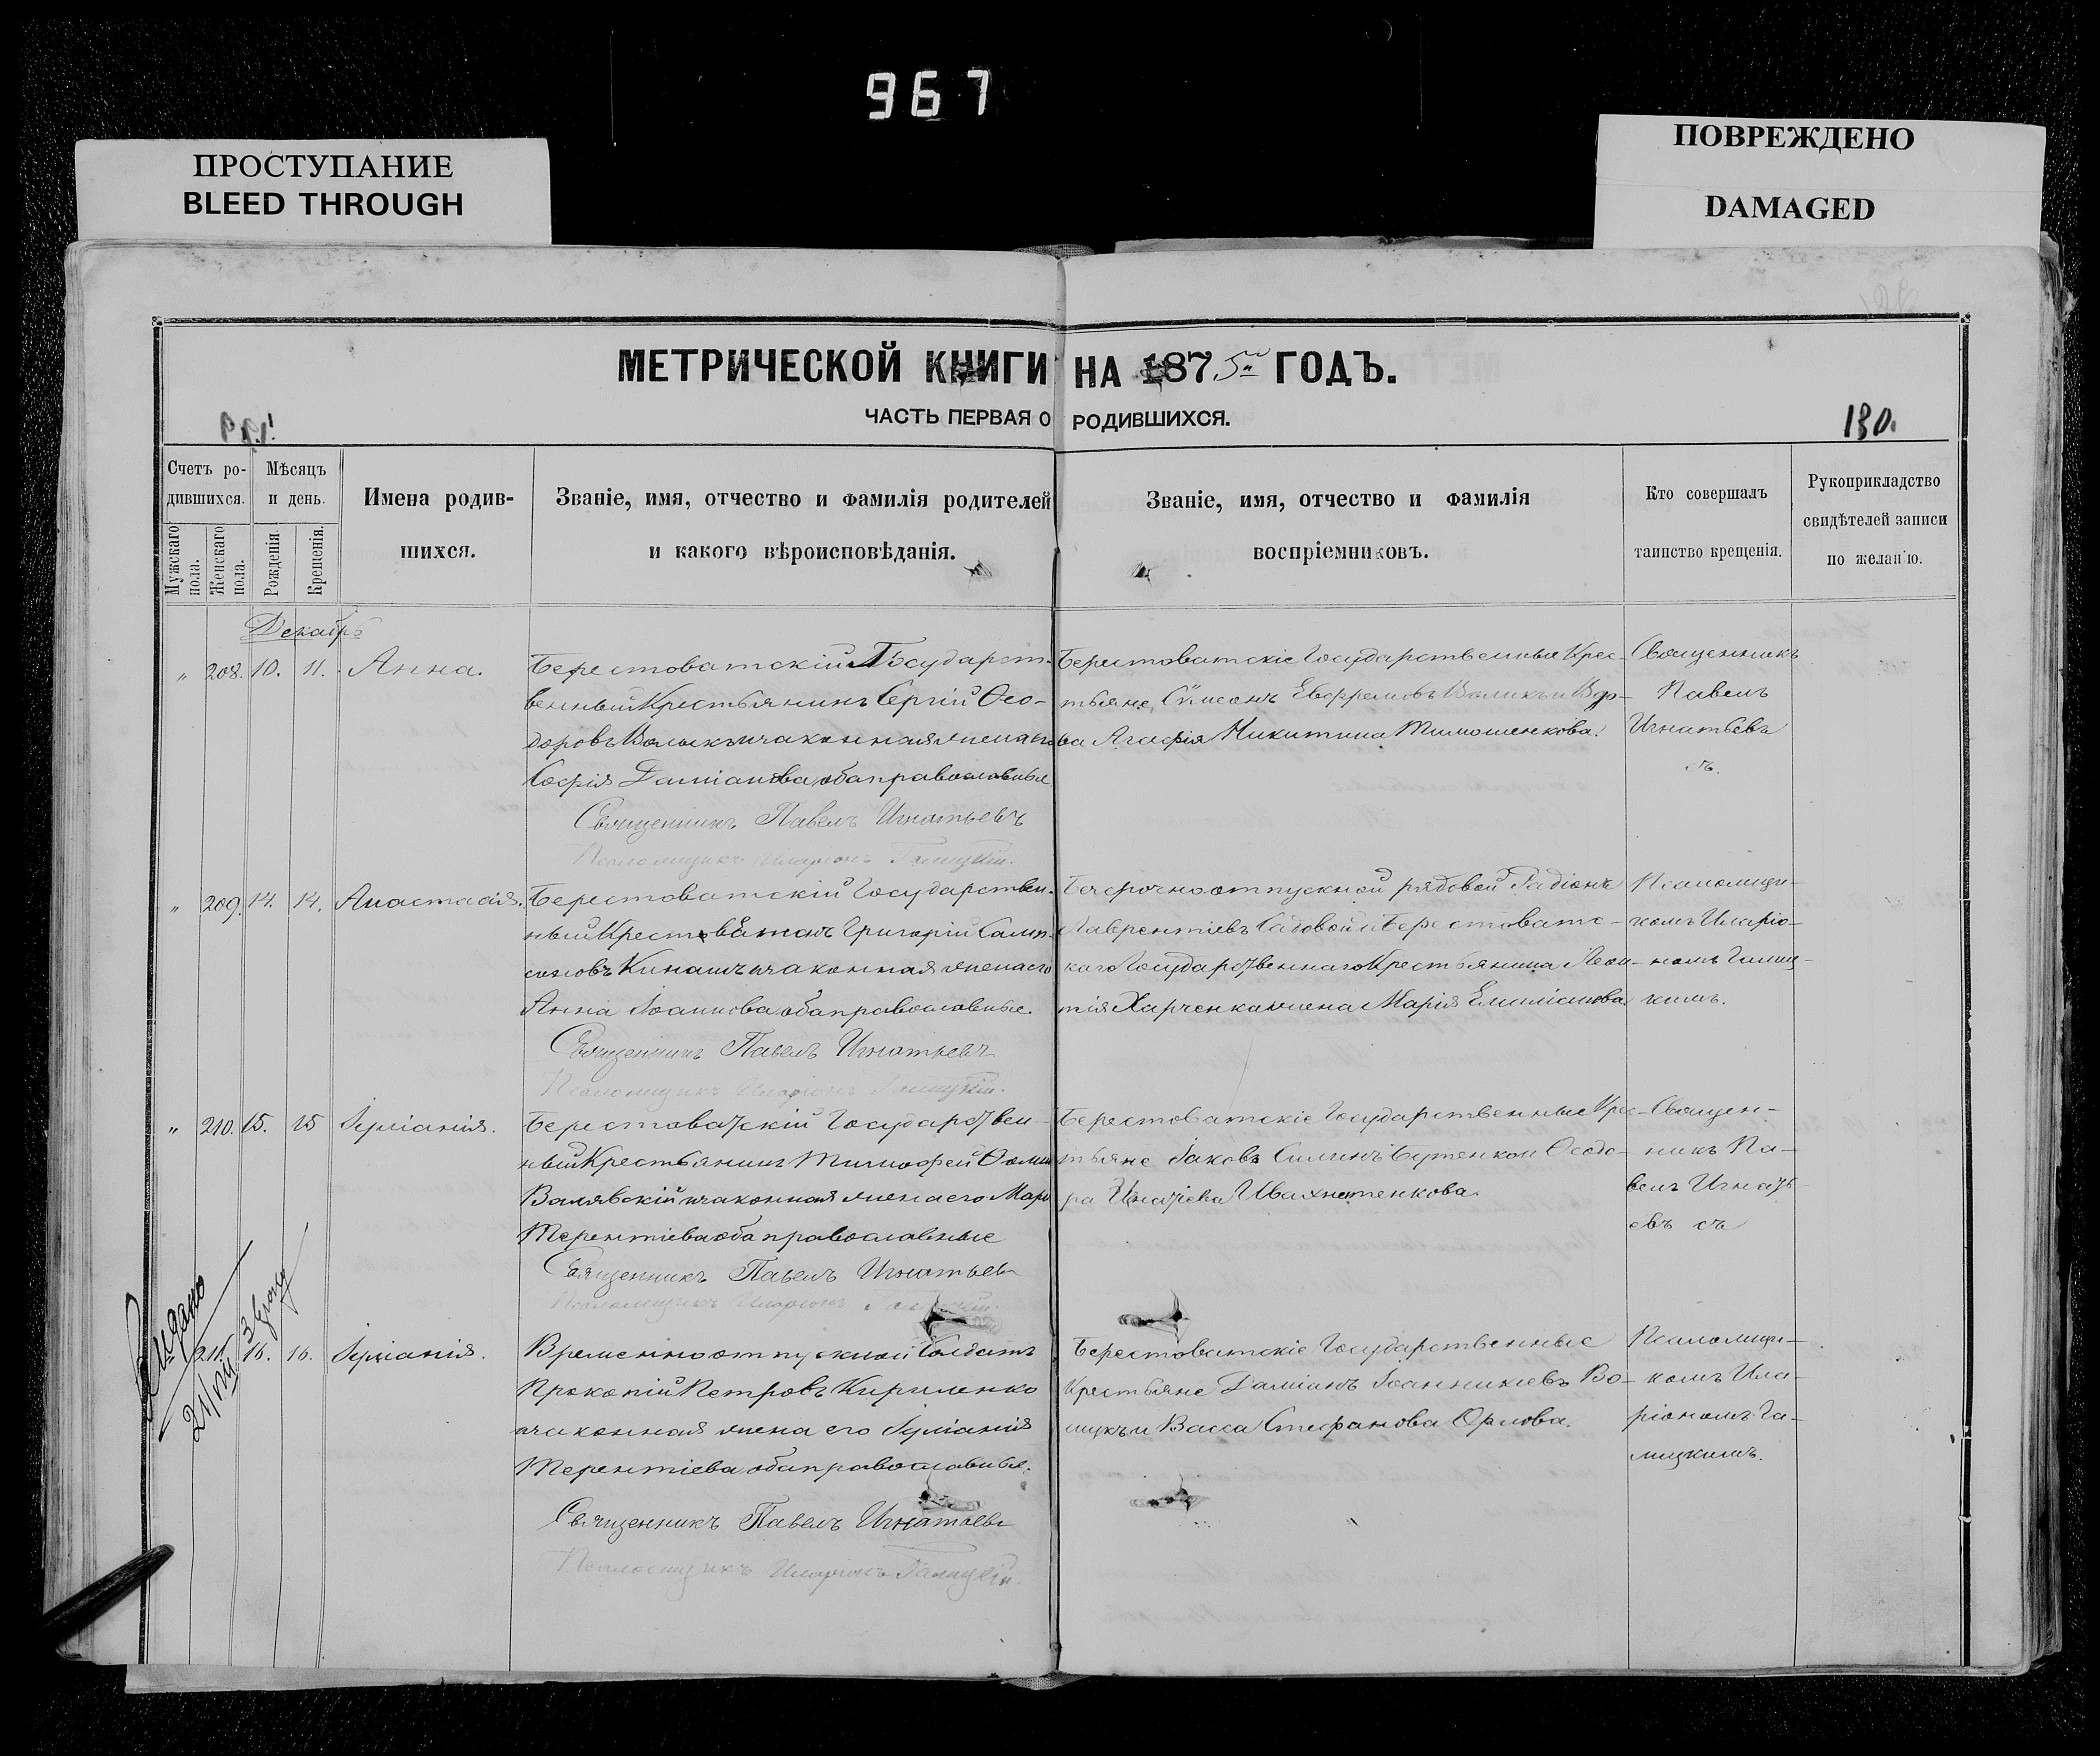 967
ПРОСТУПАНИЕ
BLEED THROUGH
ПОВРЕЖДЕНО
DAMAGED
МЕТРИЧЕСКОЙ КНИГИ НА 1875 ГОДЪ.
ЧАСТЬ ПЕРВАЯ О РОДИВШИХСЯ.
130.
Счетъ ро-
дившихся.
Мужскаго пола.
Женскаго пола.
Мѣсяцъ
и день.
Рожденія.
Крещенія.
Имена родив-
шихся.
Званіе, имя, отчество и фамилія родителей
и какого вѣроисповѣданія.
Званіе, имя, отчество и фамилія
воспріемниковъ.
Кто совершалъ
таинство крещенія.
Рукоприкладство
свидѣтелей записи
по желанію.
Декабрь
„ 208. 10. 11. Анна.
Берестоватскій Государст-
венный Крестьянинъ Сергій Ѳео-
доровъ Волыкъ и законная жена его
Софія Даміанова оба православные
Священникъ Павелъ Игнатьевъ
Псаломщикъ Иларіонъ Галицкій.
Берестоватскіе Государственные Крес-
тьяне, Сѵмеонъ Евфремовъ Волыкъ и Вдо-
ва Агафія Никитина Тимошенкова.
Священникъ
Павелъ
Игнатьевъ
съ.
„ 209. 14. 14. Анастасія.
Берестоватскій Государствен-
ный Григорій Самп-
соновъ Кинашъ и законная жена его
Анна Іоаннова оба православные.
Священникъ Павелъ Игнатьевъ
Псаломщикъ Иларіонъ Галицкій.
Безсрочноотпускной рядовой Радіонъ
Лаврентіевъ Садовой и Берестоватс-
каго Государственнаго Крестьянина Леон-
тія Харченка жена Марія Емиліанова.
Псаломщи-
комъ Иларіо-
номъ Галиц-
кимъ.
„ 210. 15. 15 Іуліанія.
Берестоватскій Государствен-
ный Крестьянинъ Тимофей Ѳомин
Валявскій и законная жена его Марѳ
Терентіева оба православные
Священникъ Павелъ Игнатьевъ
Псаломщикъ Иларіонъ Галицкій.
Берестоватскіе Государственные Крес-
тьяне Іаковъ Силинъ Бутенко и Ѳеодо-
ра Игнатіева Ивахненкова.
Священ-
никъ Па-
велъ Игнать
евъ съ
Выдано
211. 16. 16. Іуліанія.
Временноотпускной Солдатъ
Прокопій Петровъ Кириленко
и законная жена его Іуліанія
Терентіева оба православные.
Священникъ Павелъ Игнатьевъ
Псаломщикъ Иларіонъ Галицкій.
Берестоватскіе Государственные
Крестьяне Даміанъ Іоанникіевъ Во-
лыкъ и Васса Стефанова Орлова.
Псаломщи-
комъ Ила-
ріономъ Га-
лицкимъ.